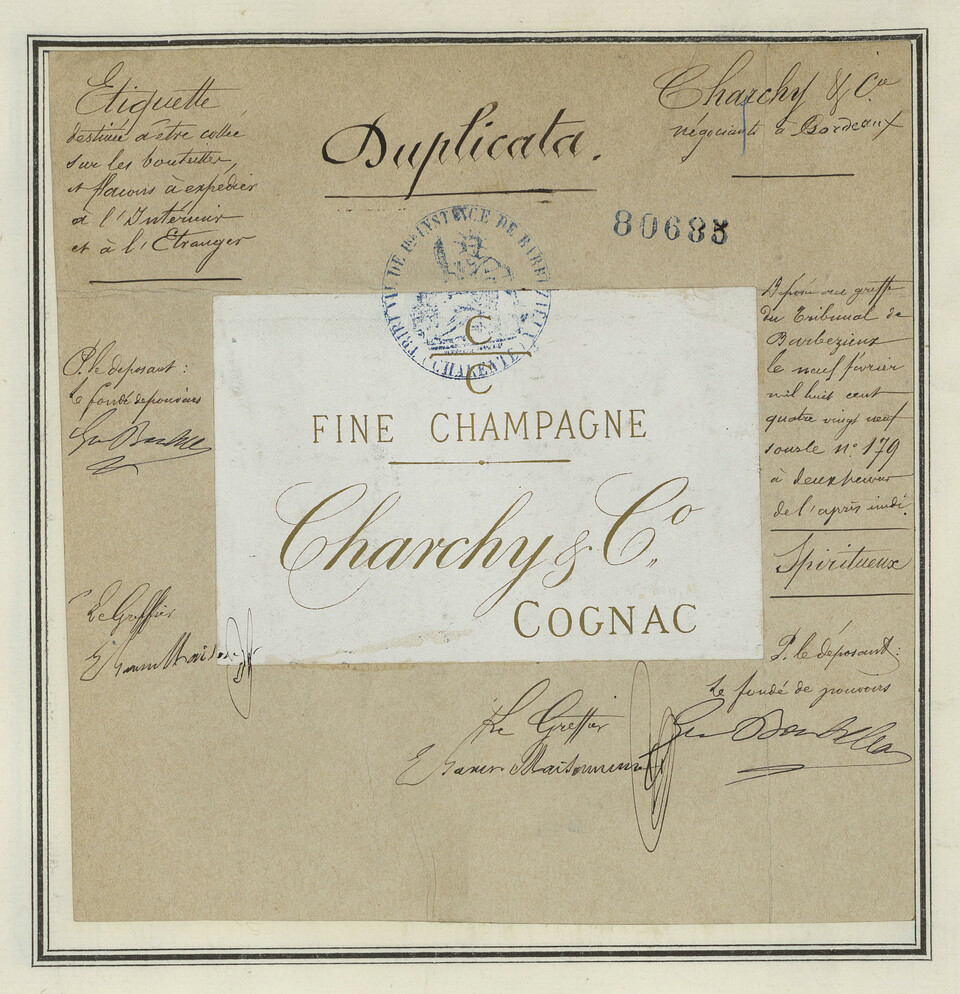 Etiquette
destinée à être collée
sur les bouteilles,
et flacons à expédier
à l'Intérieur
et à l'Etranger
Duplicata.
Charchy & Cie
négociants à Bordeaux
80685
TRIBUNAL DE 1re INSTANCE DE BARBEZIEUX
(CHARENTE)
C
C
FINE CHAMPAGNE
Charchy & Co.,
COGNAC
P. le déposant :
le fondé de pouvoirs
Le Greffier
Déposé au greffe
du Tribunal de
Barbezieux
le neuf février
mil huit cent
quatre vingt neuf
sous le no 179
à deux heures
de l'après midi.
Spiritueux
P. le déposant :
le fondé de pouvoirs
Le Greffier